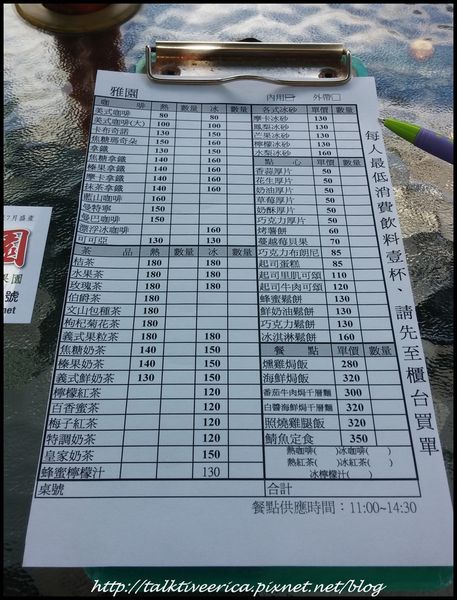 雅園
內用 外帶
咖啡 熱 數量 冰 數量
美式咖啡 80 80
美式咖啡(大) 100 100
卡布奇諾 130 150
焦糖瑪奇朵 150 160
拿鐵 130 150
焦糖拿鐵 140 160
榛果拿鐵 140 160
摩卡拿鐵 140 160
抹茶拿鐵 140 160
藍山咖啡 160
曼特寧 150
曼巴咖啡 150
漂浮冰咖啡 160
可可亞 130 130
茶品 熱 數量 冰 數量
桔茶 180 180
水果茶 180 180
玫瑰茶 180 180
伯爵茶 180
文山包種茶 180
枸杞菊花茶 180
義式果粒茶 180 180
焦糖奶茶 140 150
榛果奶茶 140 150
義式鮮奶茶 130 150
檸檬紅茶 120
百香蜜茶 120
梅子紅茶 120
特調奶茶 120
皇家奶茶 150
蜂蜜檸檬汁 130
桌號
各式冰砂 單價 數量
摩卡冰砂 130
鳳梨冰砂 130
芒果冰砂 130
檸檬冰砂 130
水梨冰砂 160
點心 單價 數量
香蒜厚片 50
花生厚片 50
奶油厚片 50
草莓厚片 50
奶酥厚片 50
巧克力厚片 50
烤薯餅 60
蔓越莓貝果 70
巧克力布朗尼 85
起司蛋糕 85
起司里肌可頌 110
起司牛肉可頌 120
蜂蜜鬆餅 130
鮮奶油鬆餅 130
巧克力鬆餅 130
冰淇淋鬆餅 160
餐點 單價 數量
燻雞焗飯 280
海鮮焗飯 320
番茄牛肉焗千層麵 300
白醬海鮮焗千層麵 320
照燒雞腿飯 320
鯖魚定食 350
熱咖啡( )冰咖啡( )
熱紅茶( )冰紅茶( )
冰檸檬汁( )
合計
餐點供應時間：11:00~14:30
每人最低消費飲料壹杯、請先至櫃台買單
7月盛產
果園
號
net
http://talktiveerica.pixnet.net/blog